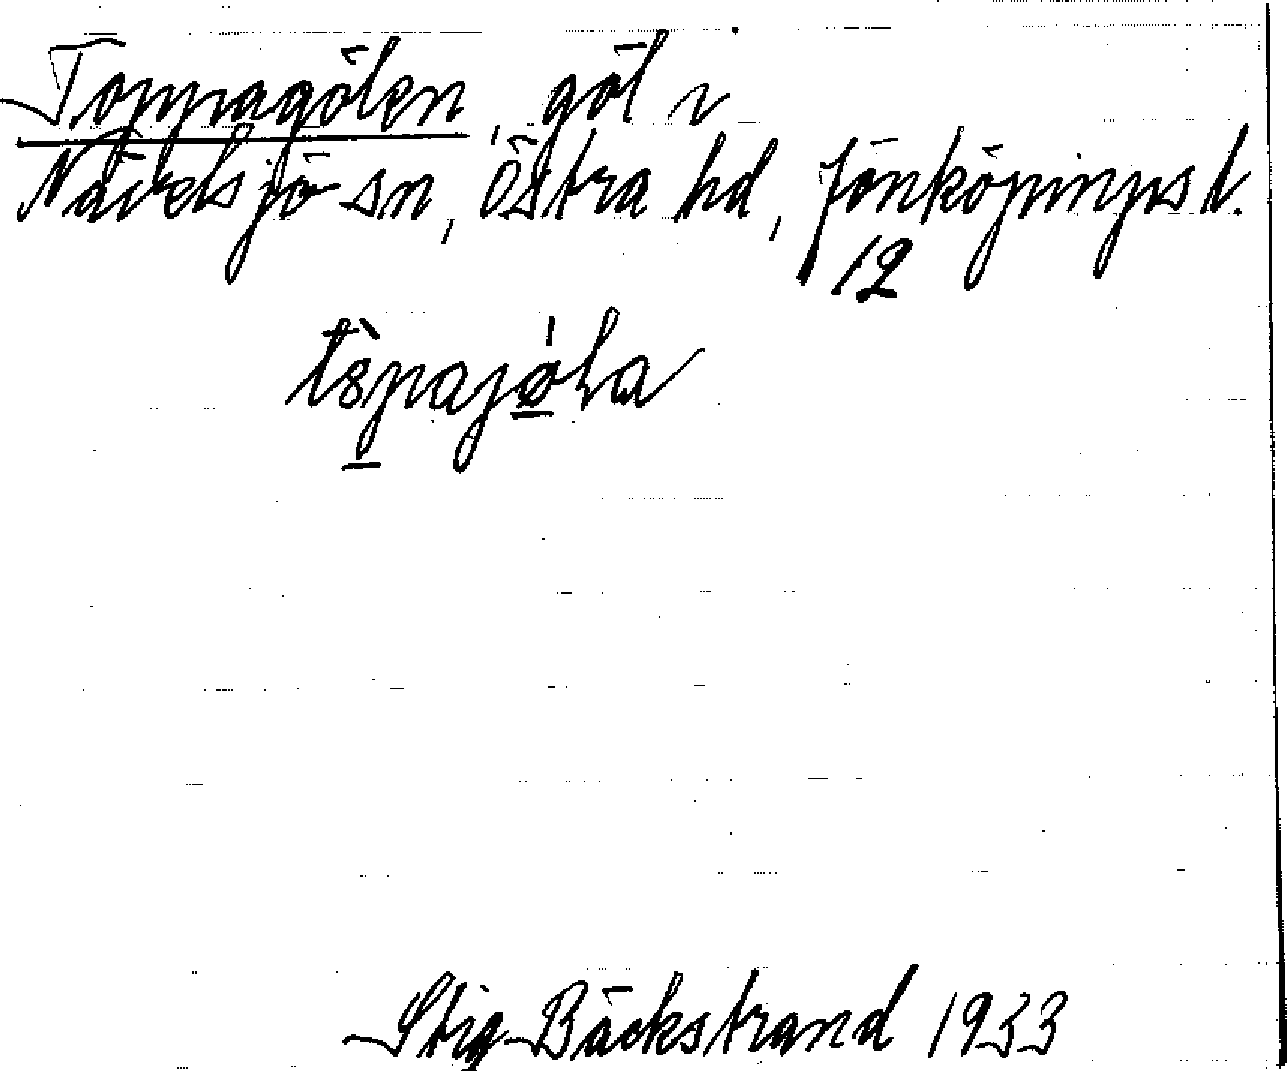 Toppagölen, göl i
Nävelsjö sn, Östra hd, Jönköpings l.
12
Stig Bäckstrand 1933